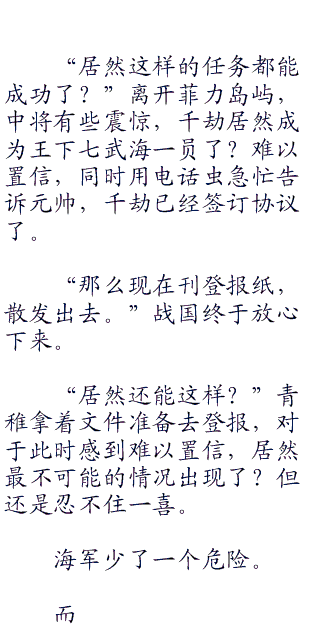 “居然这样的任务都能
成功了？”离开菲力岛屿，
中将有些震惊，千劫居然成
为王下七武海一员了？难以
置信，同时用电话虫急忙告
诉元帅，千劫已经签订协议
了。
“那么现在刊登报纸，
散发出去。”战国终于放心
下来。
“居然还能这样？”青
稚拿着文件准备去登报，对
于此时感到难以置信，居然
最不可能的情况出现了？但
还是忍不住一喜。
海军少了一个危险。
而